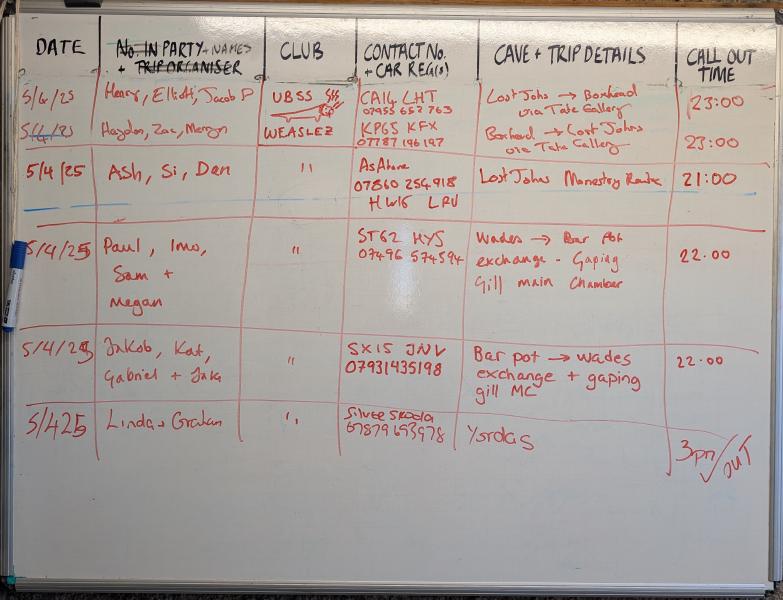 DATE
No. IN PARTY + NAMES
+ TRIP ORGANISER
CLUB
CONTACT No.
+ CAR REG(s)
CAVE + TRIP DETAILS
CALL OUT
TIME
5/4/25
Henry, Elliott, Jacob P
UBSS
CA14 LHT
07955 652 763
Lost Johns → Boxhead
via Tate Gallery
23:00
5/4/25
Haydon, Zac, Merryn
WEASLEZ
KP65 KFX
07787 196 197
Boxhead → Lost Johns
via Tate Gallery
23:00
5/4/25
Ash, Si, Dan
"
As Above
07860 254918
HW16 LRV
Lost Johns Monestry Route
21:00
5/4/25
Paul, Imo,
Sam +
Megan
"
ST62 HYS
07496 574594
Wades → Bar Pot
exchange - Gaping
Gill main Chamber
22.00
5/4/25
Jakob, Kat,
Gabriel + Jake
"
SX15 JNV
07931435198
Bar pot → wades
exchange + gaping
gill MC
22.00
5/425
Linda + Graham
"
Silver Skoda
07879693978
Yordas
3pm/OUT